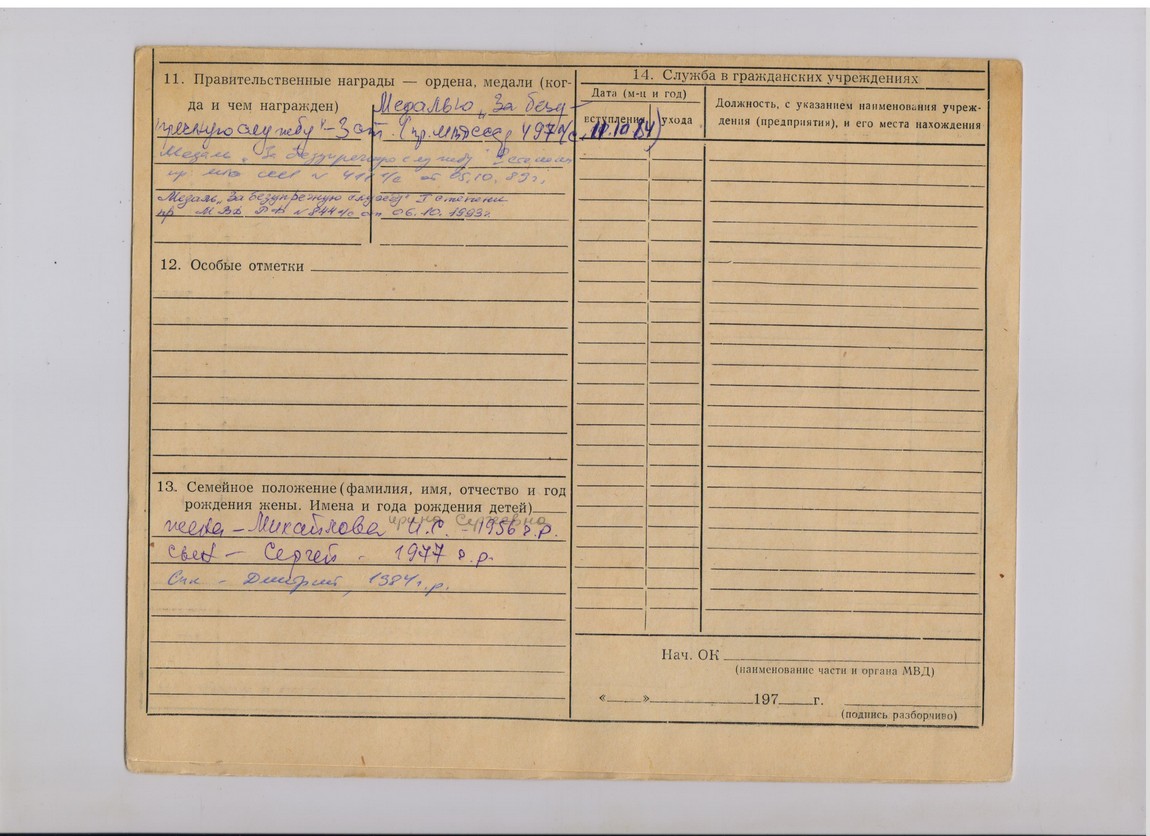 11. Правительственные награды — ордена, медали (ког-
да и чем награжден) Медалью „За безу-
пречную службу"-3 ст. (пр. МВД СССР 497 л/с 11.10.84)
Медаль „За безупречную службу" степени
пр. МВД СССР N 411 л/с от 05.10.89г.
Медаль „За безупречную службу" I степени
пр МВД РФ N 844 л/с от 06.10.1993г.
12. Особые отметки
13. Семейное положение (фамилия, имя, отчество и год
рождения жены. Имена и года рождения детей)
Ирина Сергеевна
жена – Михайлова И.С. – 1956 г.р.
сын – Сергей - 1977 г.р.
Сын - Дмитрий, 1984г.р.
14. Служба в гражданских учреждениях
Дата (м-ц и год)
вступления
ухода
Должность, с указанием наименования учреж-
дения (предприятия), и его места нахождения
Нач. ОК
(наименование части и органа МВД)
« » 197 г.
(подпись разборчиво)